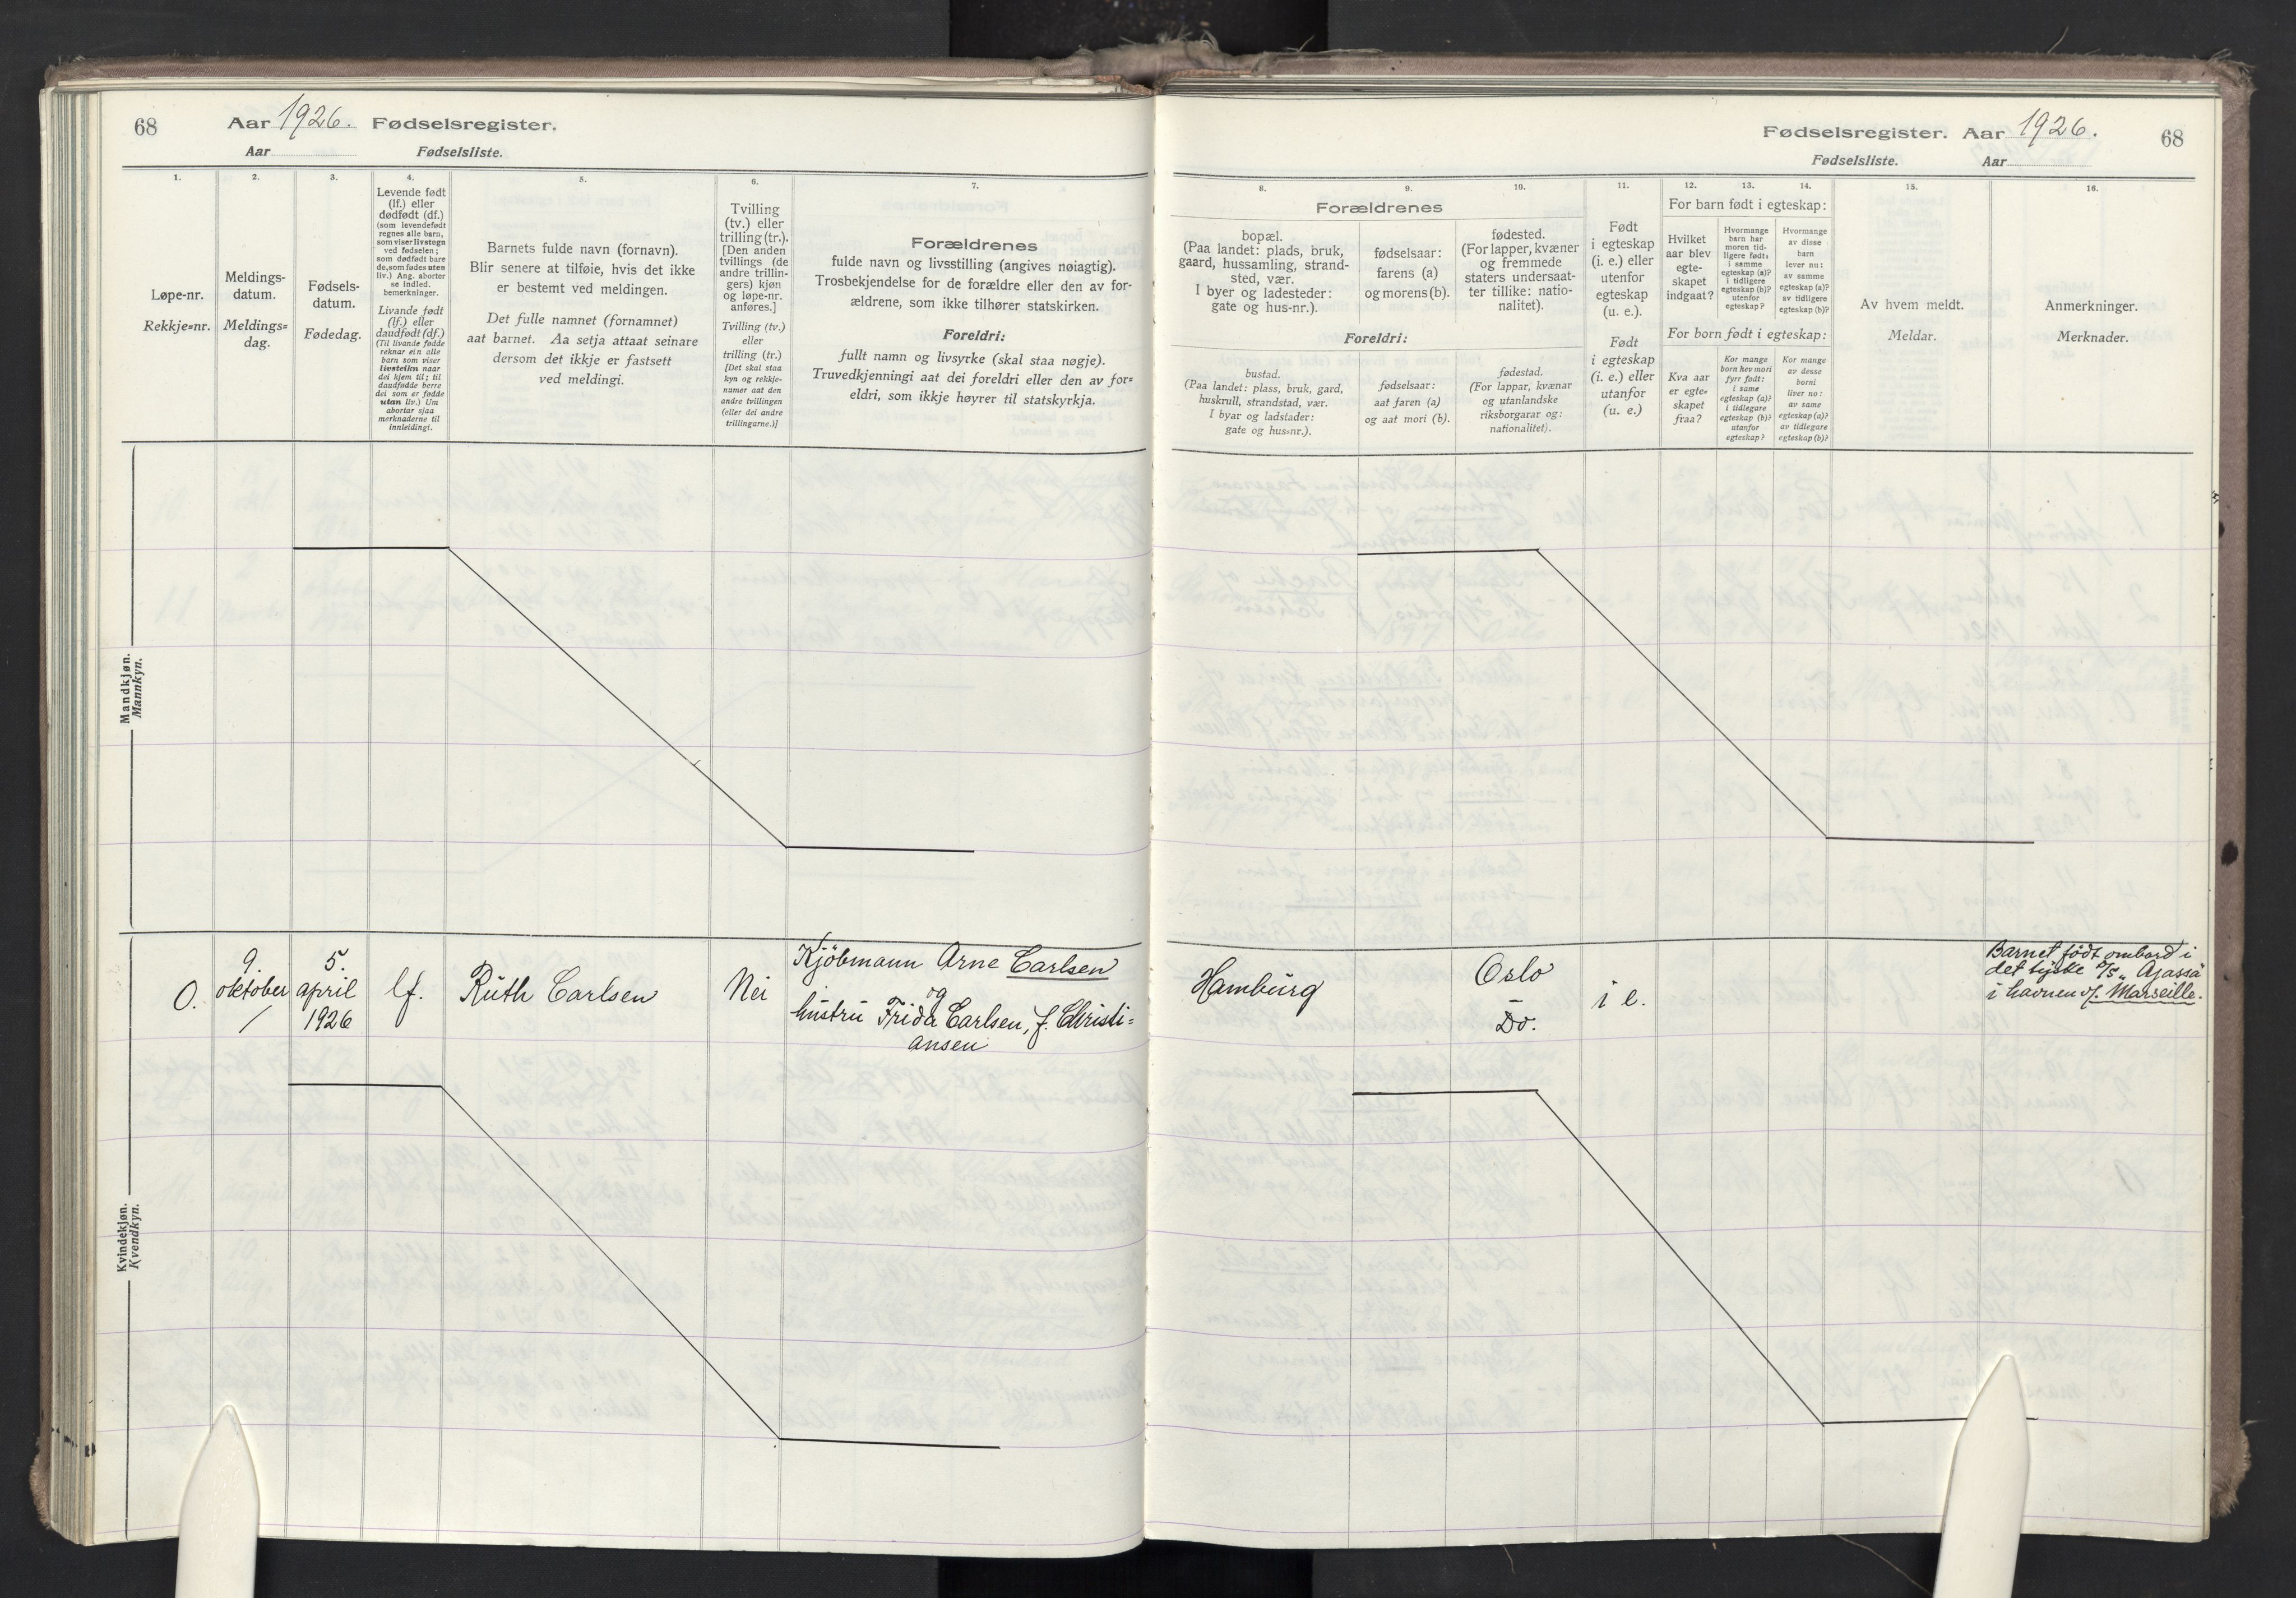 68
Aar 1926. Fødselsregister.
Aar Fødselsliste.
1.
2.
3.
4.
5.
6.
7.
Løpe-nr.
Rekkje=nr.
Meldings-
datum.
Meldings=
dag.
Fødsels-
datum.
Fødedag.
Levende født
(lf.) eller
dødfødt (df.)
(som levendefødt
regnes alle barn,
som viser livstegn
ved fødselen;
som dødfødt bare
de, som fødes uten
liv.) Ang. aborter
se indled.
bemerkninger.
Livande født
(lf.) eller
daudfødt (df.)
(Til livande fødde
reknar ein alle
barn som viser
livsteikn naar
dei kjem til; til
daudfødde berre
dei som er fødde
utan liv.) Um
abortar sjaa
merknaderne til
innleidingi.
Barnets fulde navn (fornavn).
Blir senere at tilføie, hvis det ikke
er bestemt ved meldingen.
Det fulle namnet (fornamnet)
aat barnet. Aa setja attaat seinare
dersom det ikkje er fastsett
ved meldingi.
Tvilling
(tv.) eller
trilling (tr.).
[Den anden
tvillings (de
andre trillin-
gers) kjøn
og løpe-nr.
anføres.]
Tvilling (tv.)
eller
trilling (tr.)
[Det skal staa
kyn og rekkje-
numer aat den
andre tvillingen
(eller dei andre
trillingarne.)]
Forældrenes
fulde navn og livsstilling (angives nøiagtig).
Trosbekjendelse for de forældre eller den av for-
ældrene, som ikke tilhører statskirken.
Foreldri:
fullt namn og livsyrke (skal staa nøgje).
Truvedkjenningi aat dei foreldri eller den av for=
eldri, som ikkje høyrer til statskyrkja.
Mandkjøn.
Mannkyn.
Kvindekjøn.
Kvendkyn.
0.
9.
oktober
/
5.
april
1926
lf.
Ruth Carlsen
Nei
Kjöbmann Arne Carlsen
og
hustru Frida Carlsen, f. Christi=
ansen
Fødselsregister. Aar 1926. 68
Fødselsliste. Aar
8.
9.
10.
11.
12.
13.
14.
15.
16.
Forældrenes
bopæl.
(Paa landet: plads, bruk,
gaard, hussamling, strand-
sted, vær.
I byer og ladesteder:
gate og hus-nr.).
fødselsaar:
farens (a)
og morens (b).
fødested.
(For lapper, kvæner
og fremmede
staters undersaat-
ter tillike: natio-
nalitet).
Foreldri:
bustad.
(Paa landet: plass, bruk, gard,
huskrull, strandstad, vær.
I byar og ladstader:
gate og hus=nr.).
fødselsaar:
aat faren (a)
og aat mori (b).
fødestad.
(For lappar, kvænar
og utanlandske
riksborgarar og:
nationalitet).
Født
i egteskap
(i. e.) eller
utenfor
egteskap
(u. e.).
Født
i egteskap
(i. e.) eller
utanfor
(u. e.)
For barn født i egteskap:
Hvilket
aar blev
egte-
skapet
indgaat?
Hvormange
barn har
moren tid-
ligere født:
i samme
egteskap (a)?
i tidligere
egteskap (b)?
utenfor
egteskap?
Hvormange
av disse
barn
lever nu:
av samme
egteskap (a)?
av tidligere
egteskap (b)?
For born født i egteskap:
Kva aar
er egte-
skapet
fraa?
Kor mange
born hev mori
fyrr født:
i same
egteskap (a)?
i tidlegare
egteskap (b)?
utanfor
egteskap?
Kor mange
av desse
borni
liver no:
av same
egteskap (a)?
av tidlegare
egteskap (b)?
Av hvem meldt.
Meldar.
Anmerkninger.
Merknader.
Hamburg
Oslo
Do.
i e.
Barnet født ombord i
det tyske D/S „Ajassa"
i havnen v/. Marseille.